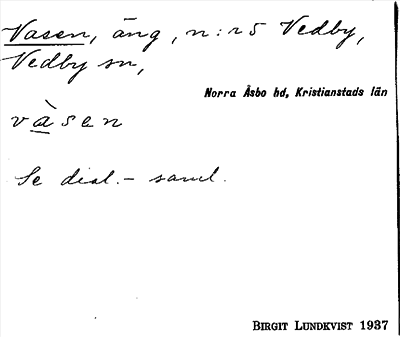 Vasen, äng, n:r 5 Vedby,
Vedby sn,
Norra Åsbo hd, Kristianstads län
vàsen
Se dial.- saml.
BIRGIT LUNDKVIST 1937